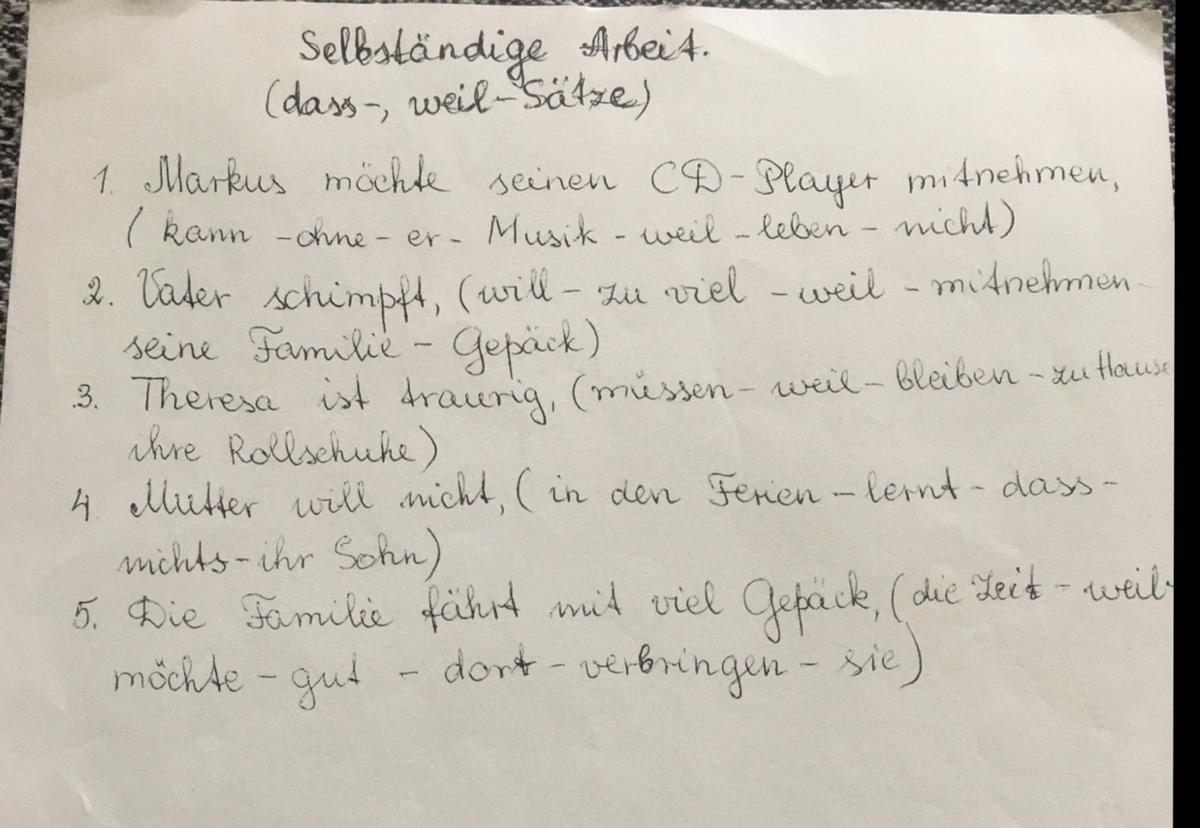 Selbständige Arbeit.
(dass-, weil-Sätze)
1. Markus möchte seinen CD-Player mitnehmen,
(kann -ohne- er- Musik - weil - leben - nicht)
2. Vater schimpft, (will - zu viel - weil - mitnehmen -
seine Familie - Gepäck)
3. Theresa ist traurig, (müssen - weil - bleiben - zu Hause
ihre Rollschuhe)
4. Mutter will nicht, (in den Ferien - lernt - dass -
nichts - ihr Sohn)
5. Die Familie fährt mit viel Gepäck, (die Zeit - weil -
möchte - gut - dort - verbringen - sie)